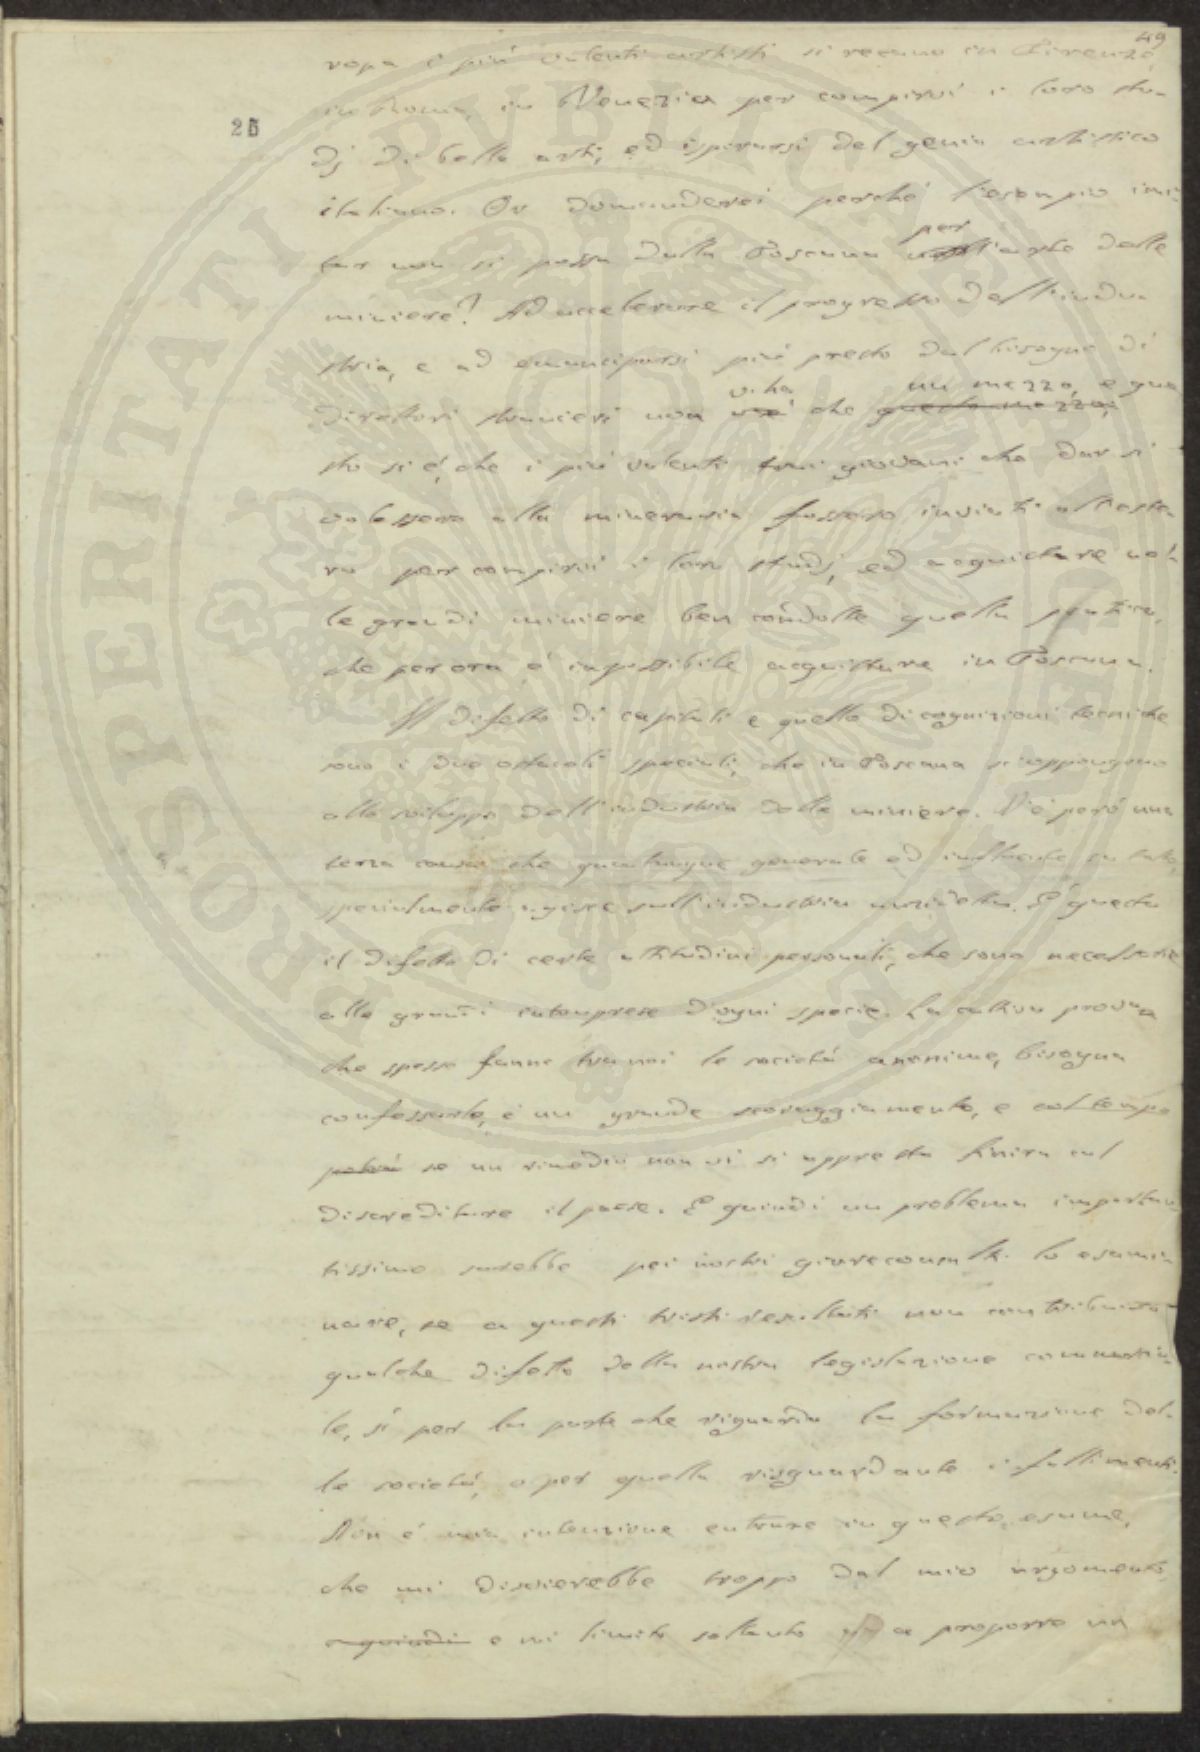 49
ropa i più valenti artisti si recano in Firenze,
in Roma, in Venezia per compirvi i loro stu-
25
dj di belle arti, ed ispirarsi del genio artistico
italiano. Or domanderei perchè l'esempio imi-
per
tar non si possa dalla Toscana l'arte delle
miniere? Ad accelerare il progresso dell'indu-
stria, e ad emanciparsi più presto dal bisogno di
v'ha un mezzo, e que
direttori stranieri non che questo mezzo,
sto si è, che i più valenti fra i giovani che dar si
volessero alla mineraria fossero inviati all'este-
ro per compirvi i loro studj, ed acquistare nel-
le grandi miniere ben condotte quella pratica,
che per ora è impossibile acquistare in Toscana.
Il difetto di capitali e quello di cognizioni tecniche
sono i due ostacoli speciali, che in Toscana si oppongono
allo sviluppo dell'industria delle miniere. V'è però una
terza causa che quantunque generale ed influente su tutto,
specialmente agisce sull'industria anzidetta. È questa
il difetto di certe attitudini personali, che sono necessarie
alle grandi intraprese d'ogni specie. La cattiva prova
che spesso fanno tra noi le società anonime, bisogna
confessarlo, è un grande scoraggiamento, e col tempo
potrà se un rimedio non vi si appresta finirà col
discreditare il paese. E quindi un problema importan-
tissimo sarebbe pei nostri giureconsulti lo esami-
nare, se a questi tristi resultati non contribuisca
qualche difetto della nostra legislazione commercia-
le, sì per la parte che riguarda la formazione del-
le società, o per quella risguardante i fallimenti.
Non è mia intenzione entrare in questo esame,
che mi disvierebbe troppo dal mio argomento
e quindi e mi limito soltanto a proporre un
PROSPERITATI PUBLICAE AUGENDAE